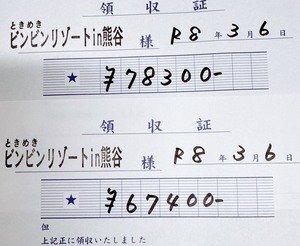 領収証
ときめき
ピンピンリゾートin熊谷 様 R8年3月6日
★ ¥78300-
領収証
ときめき
ピンピンリゾートin熊谷 様 R8年3月6日
★ ¥67400-
但
上記正に領収いたしました